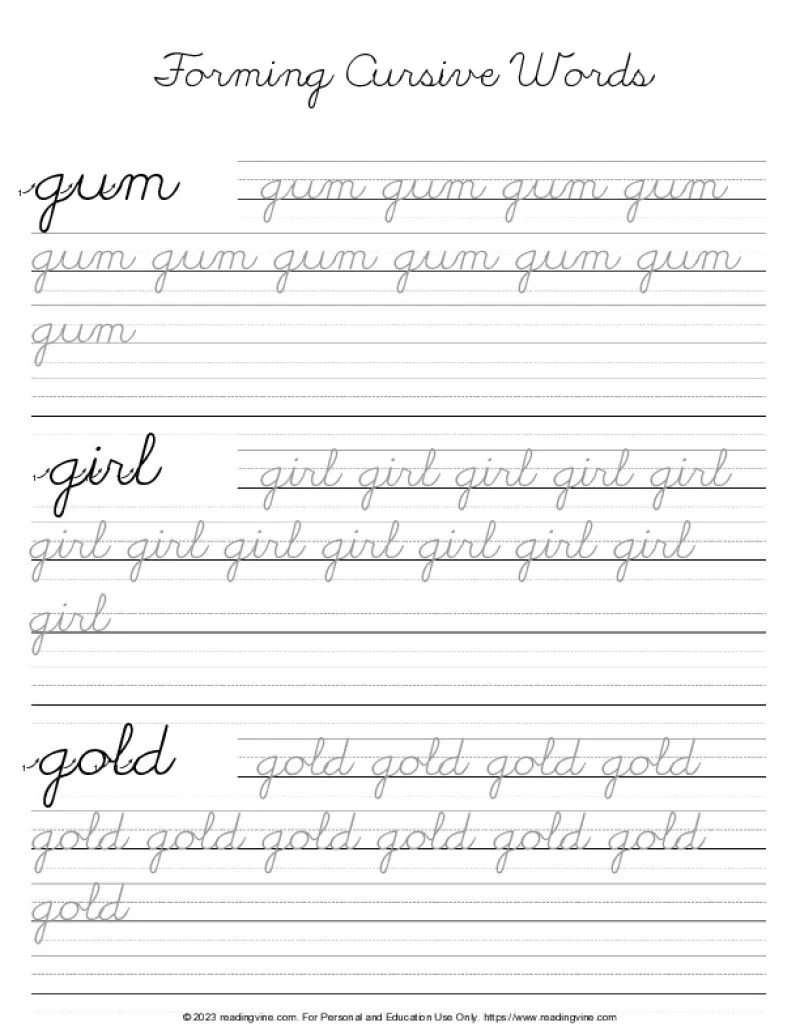 Forming Cursive Words
gum gum gum gum gum
gum gum gum gum gum gum
gum
girl girl girl girl girl girl
girl girl girl girl girl girl girl
girl
gold gold gold gold gold
gold gold gold gold gold gold
gold
© 2023 readingvine.com. For Personal and Education Use Only. https://www.readingvine.com